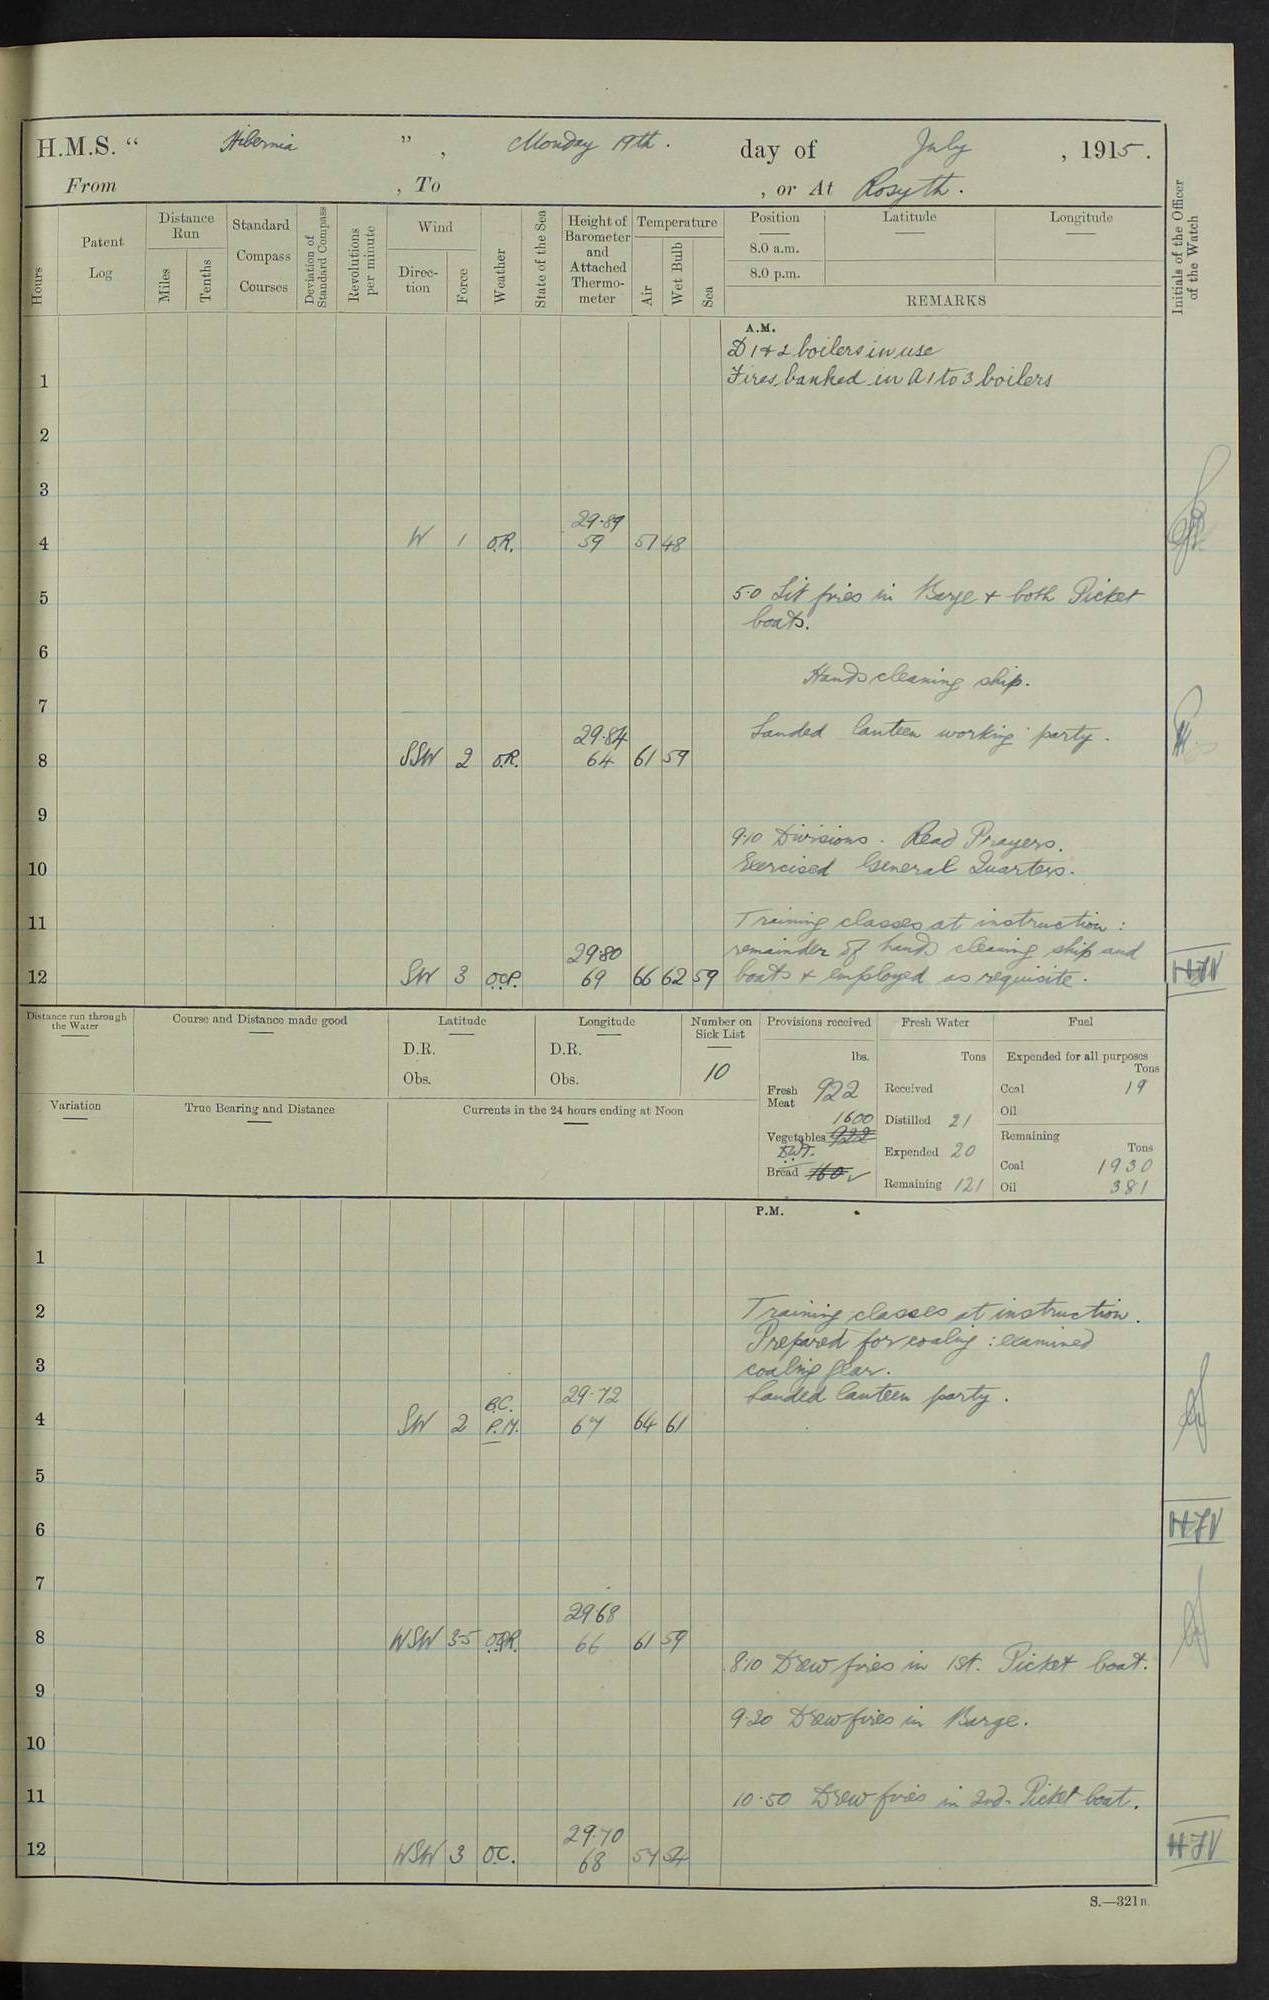 H.M.S. “ Hibernia ” , Monday 19th. day of July , 1915.
From , To , or At Rosyth.
Hours
Patent Log
Distance Run
Miles
Tenths
Standard Compass Courses
Deviation of Standard Compass
Revolutions per minute
Wind
Direction
Force
Weather
State of the Sea
Height of Barometer and Attached Thermometer
Temperature
Air
Wet Bulb
Sea
Position
Latitude
Longitude
8.0 a.m.
8.0 p.m.
REMARKS
Initials of the Officer of the Watch
A.M.
D 1 & 2 boilers in use
1 Fires banked in A 1 to 3 boilers
2
3
29.89
4 W 1 O.R. 59 51 48
5 5.0 Lit fires in Barge & both Picket
boats.
6
Hands cleaning ship.
7
29.84 Landed Canteen working party.
8 SSW 2 O.R. 64 61 59
9
9.10 Divisions. Read Prayers.
10 Exercised General Quarters.
11 Training classes at instruction :
29.80 remainder of hands cleaning ship and
12 SW 3 O.C.P. 69 66 62 59 boats & employed as requisite. HJV
Distance run through the Water
Course and Distance made good
Latitude
D.R.
Obs.
Longitude
D.R.
Obs.
Number on Sick List
10
Variation
True Bearing and Distance
Currents in the 24 hours ending at Noon
Provisions received
lbs.
Fresh Meat 922
1600
Vegetables 922
Bread 160
Fresh Water
Tons
Received
Distilled 21
Expended 20
Remaining 121
Fuel
Expended for all purposes
Tons
Coal 19
Oil
Remaining
Tons
Coal 1930
Oil 381
P.M.
1
2 Training classes at instruction.
Prepared for coaling : examined
3 coaling gear.
B.C. 29.72 Landed Canteen party.
4 SW 2 P.M. 67 64 61
5
6 HJV
7
29 68
8 WSW 3-5 66 61 59
8.10 Drew fires in 1st. Picket boat.
9
9.20 Drew fires in Barge.
10
11 10.50 Drew fires in 2nd. Picket boat.
29.70
12 WSW 3 O.C. 68 57 54 HJV
S.—321B.